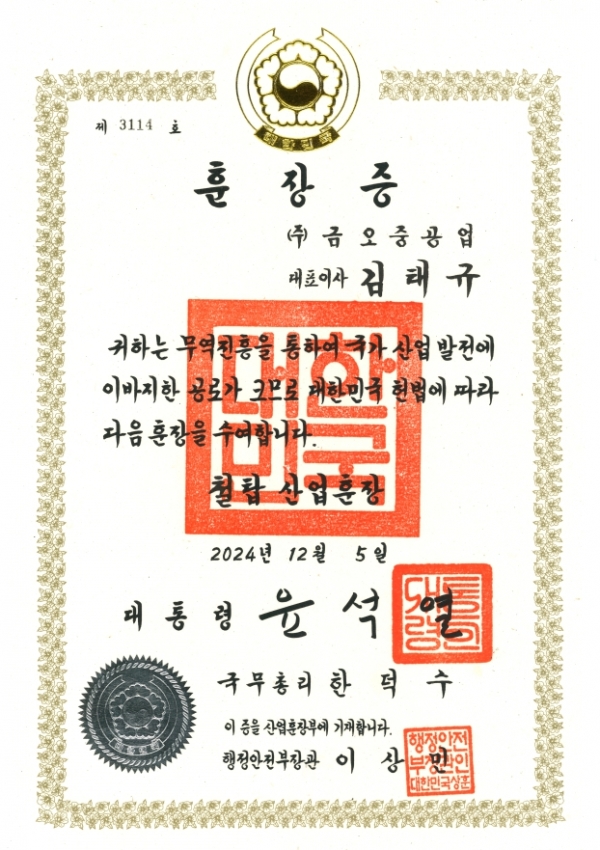 대한민국
제 3114 호
훈장증
(주) 금오중공업
대표이사 김태규
귀하는 무역진흥을 통하여 국가 산업 발전에
이바지한 공로가 크므로 대한민국 헌법에 따라
다음 훈장을 수여합니다.
대한민국
철탑 산업훈장
2024년 12월 5일
대통령 윤석열
대통령의인
국무총리 한덕수
대한민국
이 증을 산업훈장부에 기재합니다.
행정안전부장관 이상민
행정안전
부장관인
대한민국상훈